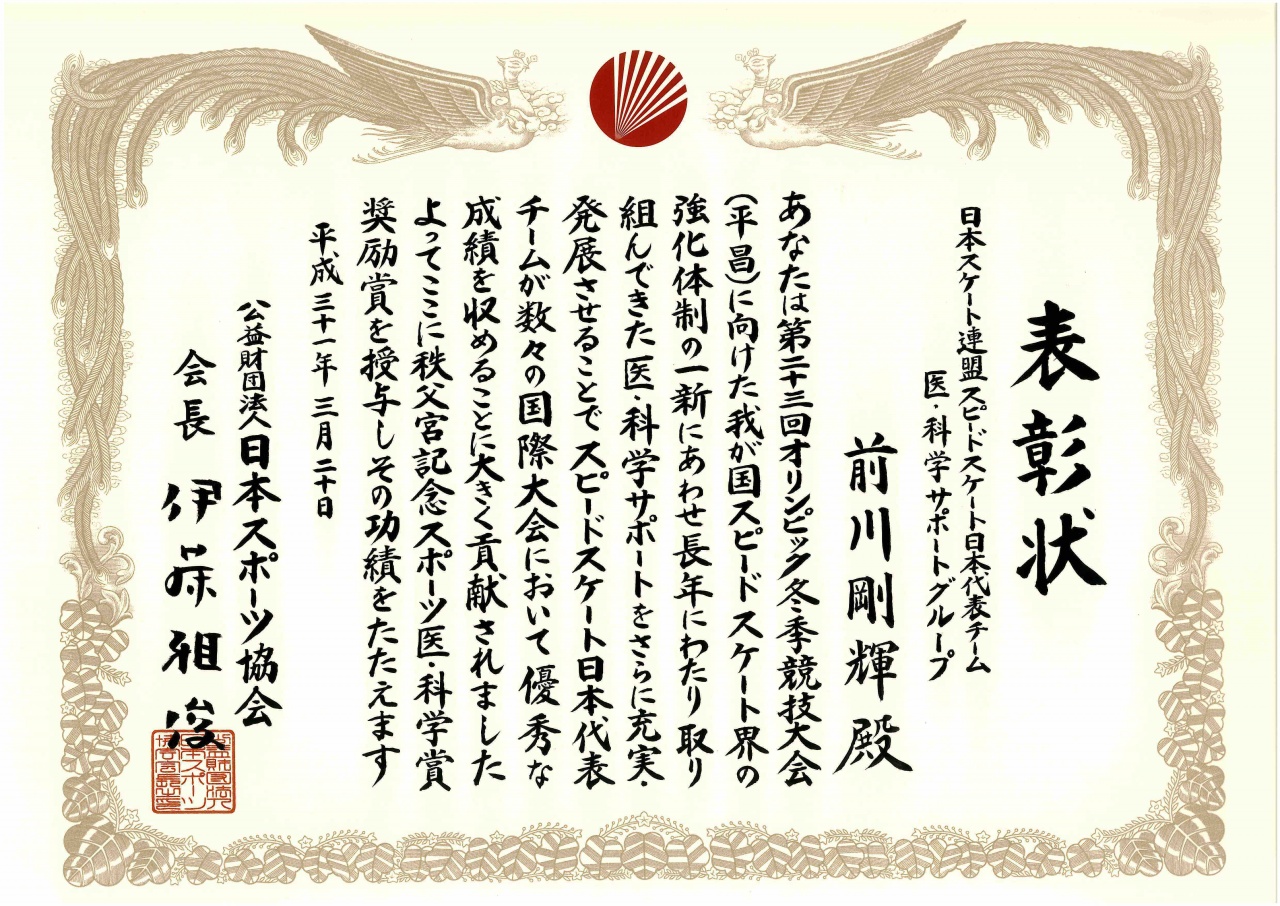 表彰状
日本スケート連盟スピードスケート日本代表チーム
医・科学サポートグループ
前川剛輝殿
あなたは第二十三回オリンピック冬季競技大会
(平昌)に向けた我が国スピードスケート界の
強化体制の一新にあわせ長年にわたり取り
組んできた医・科学サポートをさらに充実・
発展させることでスピードスケート日本代表
チームが数々の国際大会において優秀な
成績を収めることに大きく貢献されました
よってここに秩父宮記念スポーツ医・科学賞
奨励賞を授与しその功績をたたえます
平成三十一年三月二十日
公益財団法人日本スポーツ協会
会長 伊藤雅俊